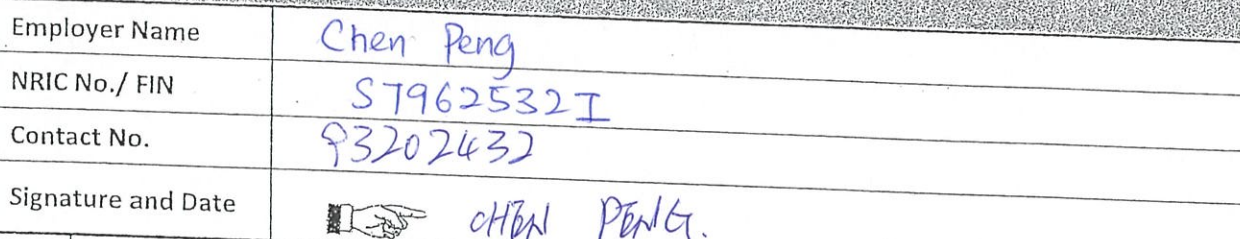 Employer Name Chen Peng
NRIC No./ FIN S7962532I
Contact No. 93202432
Signature and Date CHEN PENG.